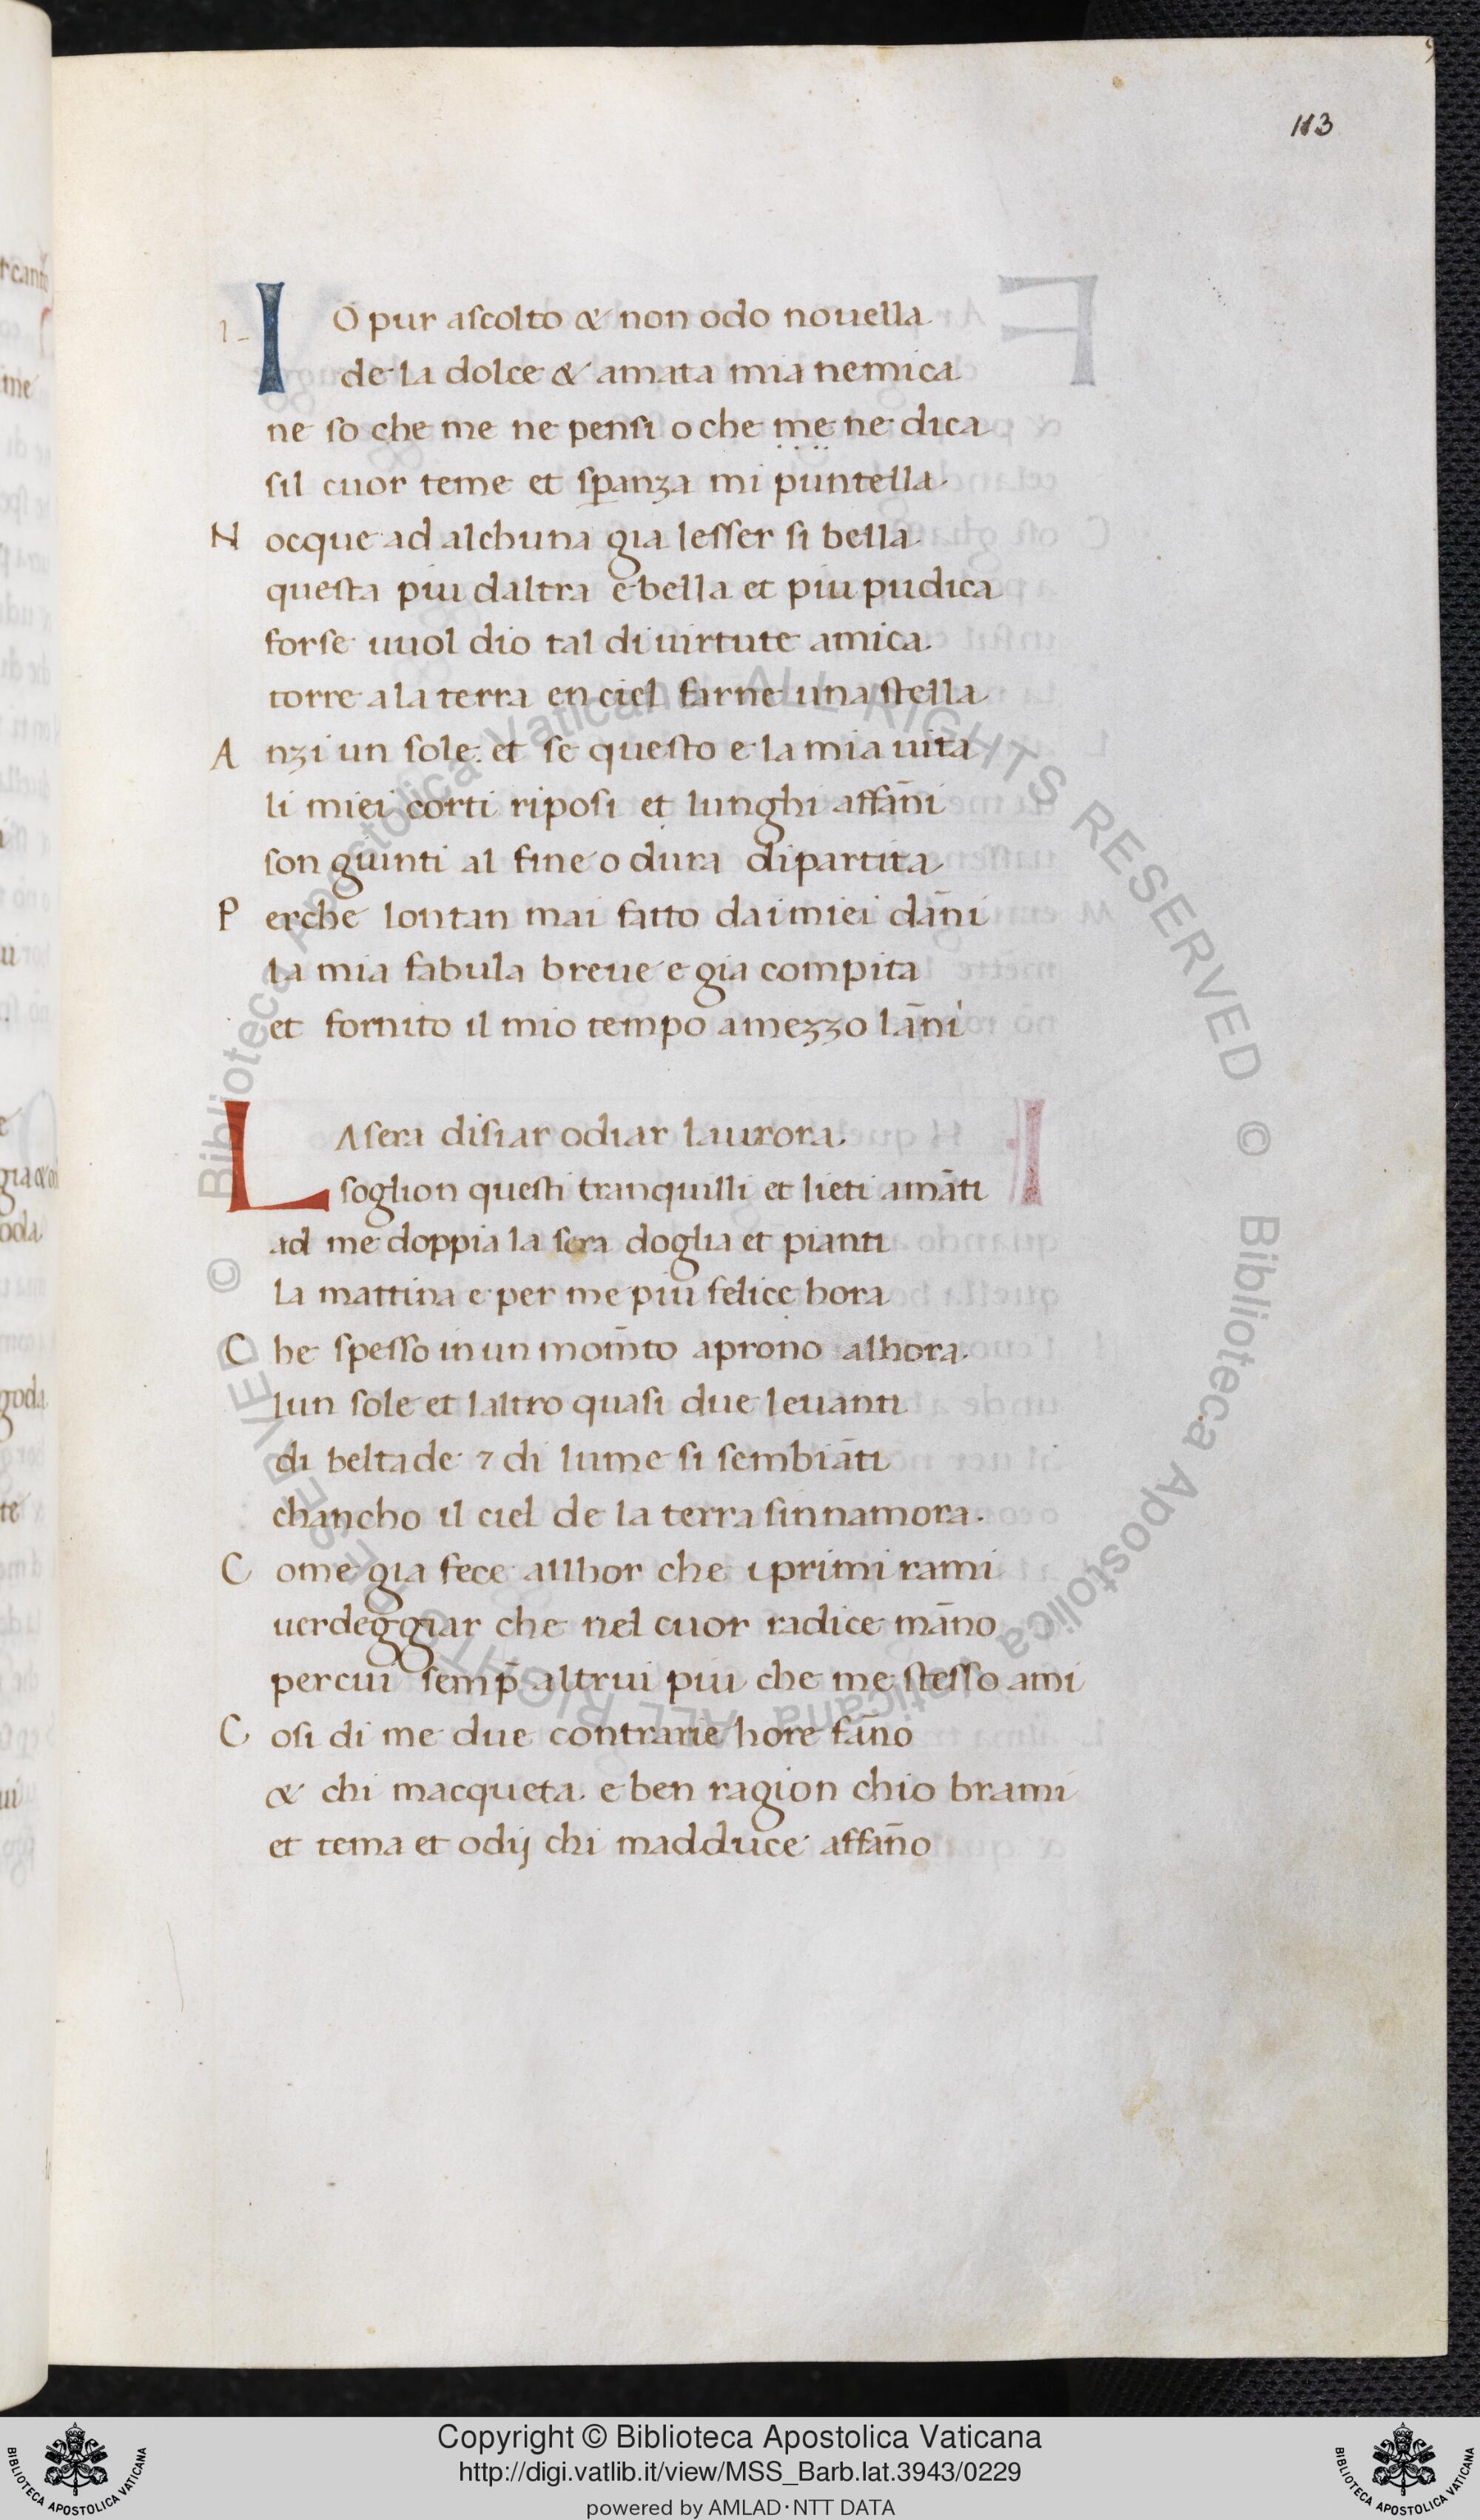 113
IO pur ascolto & non odo nouella
de la dolce & amata mia nemica
ne so che me ne pensi o che me ne dica
sil cuor teme et sꝑanza mi puntella
N ocque ad alchuna gia lesser si bella
questa piu daltra e bella et piu pudica
forse uuol dio tal di uirtute amica
torre a la terra en ciel farne una stella
A nzi un sole. et se questo e la mia uita
li miei corti riposi et lunghi affāni
son giunti al fine o dura dipartita
P erche lontan mai fatto da i miei dāni
la mia fabula breue e gia compita
et fornito il mio tempo a mezzo lāni
LA sera disiar odiar laurora
soglion questi tranquilli et lieti amāti
ad me doppia la sera doglia et pianti
la mattina e per me piu felice hora
C he spesso in un mom̄to aprono alhora.
lun sole et laltro quasi due leuanti
di beltade ⁊ di lume si sembiāti
chancho il ciel de la terra sinnamora.
C ome gia fece allhor che i primi rami
uerdeggiar che nel cuor radice māno
per cui semp̄ altrui piu che me stesso ami
C osi di me due contrarie hore fāno
& chi macqueta. e ben ragion chio brami
et tema et odij chi madduce affāno
© Biblioteca Apostolica Vaticana ALL RIGHTS RESERVED © Biblioteca Apostolica Vaticana ALL RIGHTS RESERVED
Copyright © Biblioteca Apostolica Vaticana
http://digi.vatlib.it/view/MSS_Barb.lat.3943/0229
powered by AMLAD·NTT DATA
BIBLIOTECA APOSTOLICA VATICANA
BIBLIOTECA APOSTOLICA VATICANA